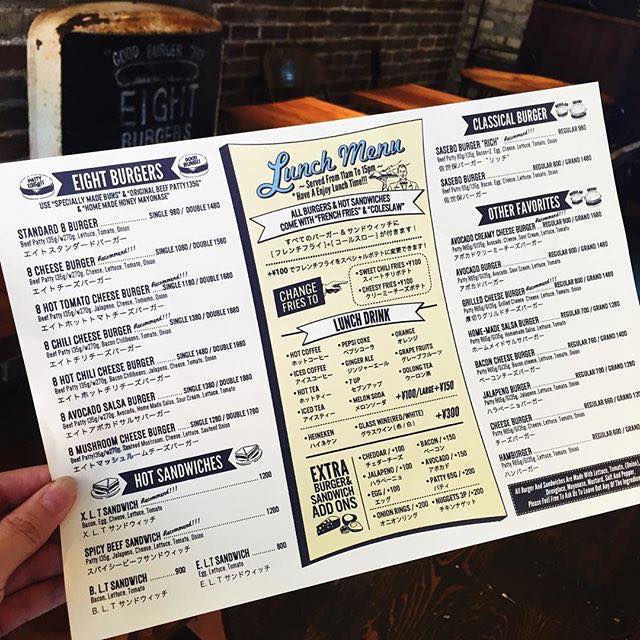 "GOOD BURGER"
EIGHT
BURGERS
PATTY 135g!!
EIGHT BURGERS
GOOD BUNS!!
USE "SPECIALLY MADE BUNS" & "ORIGINAL BEEF PATTY135G"
& "HOME MADE HONEY MAYONAISE"
STANDARD 8 BURGER SINGLE 980 / DOUBLE 1480
Beef Patty 135g/W270g, Lettuce, Tomato, Onion
エイトスタンダードバーガー
8 CHEESE BURGER SINGLE 1080 / DOUBLE 1580
Beef Patty 135g/W270g, Cheese, Lettuce, Tomato, Onion
エイトチーズバーガー
8 HOT TOMATO CHEESE BURGER Recommend!!! SINGLE 1180 / DOUBLE 1680
Beef Patty 135g/W270g, Jalapeno, Cheese, Tomato, Onion
エイトホットトマトチーズバーガー
8 CHILI CHEESE BURGER SINGLE 1380 / DOUBLE 1880
Beef Patty 135g/W270g, Bacon Chilibeans, Tomato, Onion
エイトチリチーズバーガー
8 HOT CHILI CHEESE BURGER SINGLE 1480 / DOUBLE 1980
Beef Patty 135g/W270g, Bacon Chilibeans, Jalapeno, Cheese, Tomato, Onion
エイトホットチリチーズバーガー
8 AVOCADO SALSA BURGER SINGLE 1380 / DOUBLE 1880
Beef Patty 135g/W270g, Avocado, Home Made Salsa, Sour Cream, Lettuce, Tomato
エイトアボカドサルサバーガー
8 MUSHROOM CHEESE BURGER SINGLE 1280 / DOUBLE 1780
Beef Patty 135g/W270g, Sauteed Mushroom, Cheese, Lettuce, Sauteed Onion
エイトマッシュルームチーズバーガー
HOT SANDWICHES
X. L. T SANDWICH Recommend!!! 1200
Bacon, Egg, Cheese, Lettuce, Tomato
X. L. T サンドウィッチ
SPICY BEEF SANDWICH Recommend!!! 1200
Patty 135g, Jalapeno, Cheese, Lettuce, Tomato, Onion
スパイシービーフサンドウィッチ
B. L. T SANDWICH 900
Bacon, Lettuce, Tomato
B. L. T サンドウィッチ
E. L. T SANDWICH 800
Egg, Lettuce, Tomato
E. L. T サンドウィッチ
Lunch Menu
~ Served From 11am To 15pm ~
"Have A Enjoy Lunch Time!!!"
ALL BURGERS & HOT SANDWICHES
COME WITH "FRENCH FRIES" & "COLESLAW"
すべてのバーガー&サンドウィッチに
「フレンチフライ」+「コールスロー」が付きます!
+¥100 でフレンチフライをスペシャルポテトに変更できます!
CHANGE
FRIES TO
• SWEET CHILI FRIES +¥100
スィートチリポテト
• CHEESY FRIES +¥100
クリーミーチーズポテト
LUNCH DRINK
• HOT COFFEE
ホットコーヒー
• ICED COFFEE
アイスコーヒー
• HOT TEA
ホットティー
• ICED TEA
アイスティー
• PEPSI COKE
ペプシコーラ
• GINGER ALE
ジンジャーエール
• 7 UP
セブンアップ
• MELON SODA
メロンソーダ
• ORANGE
オレンジ
• GRAPE FRUITS
グレープフルーツ
• OOLONG TEA
ウーロン茶
+¥100/LARGE+¥150
• HEINEKEN
ハイネケン
• GLASS WINE(RED/WHITE)
グラスワイン(赤 / 白)
+¥300
EXTRA
BURGER&
SANDWICH
ADD ONS
• CHEDDAR / +100
チェダーチーズ
• JALAPENO / +100
ハラペーニョ
• EGG / +100
エッグ
• ONION RINGS / +200
オニオンリング
• BACON / +150
ベーコン
• AVOCADO / +200
アボカド
• PATTY 65G / +200
パティ
• NUGGETS 3P / +200
チキンナゲット
CLASSICAL BURGER
SASEBO BURGER "RICH" Recommend!!! REGULAR 980
Beef Patty 85g/115g, Bacon×2, Egg, Cheese, Lettuce, Tomato, Onion
佐世保バーガー "リッチ"
SASEBO BURGER REGULAR 880 / GRAND 1480
Beef Patty, Bacon, Egg, Cheese, Lettuce, Tomato, Onion
佐世保バーガー
OTHER FAVORITES
AVOCADO CREAMY CHEESE BURGER Recommend!!! REGULAR 900 / GRAND 1500
アボカドクリーミーチーズバーガー
AVOCADO BURGER
アボカドバーガー
GRILLED CHEESE BURGER Recommend!!!
厚切りグリルドチーズバーガー
HOME-MADE SALSA BURGER
ホームメイドサルサバーガー
BACON CHEESE BURGER
ベーコンチーズバーガー
JALAPENO BURGER
ハラペーニョバーガー
CHEESE BURGER
チーズバーガー
HAMBURGER
ハンバーガー
All Burger And Sandwiches Are Made With Lettuce, Tomato,
Mayonaise, Mustard, Salt And Pepper.
Please Feel Free To Ask Us To Leave Out Any Of The